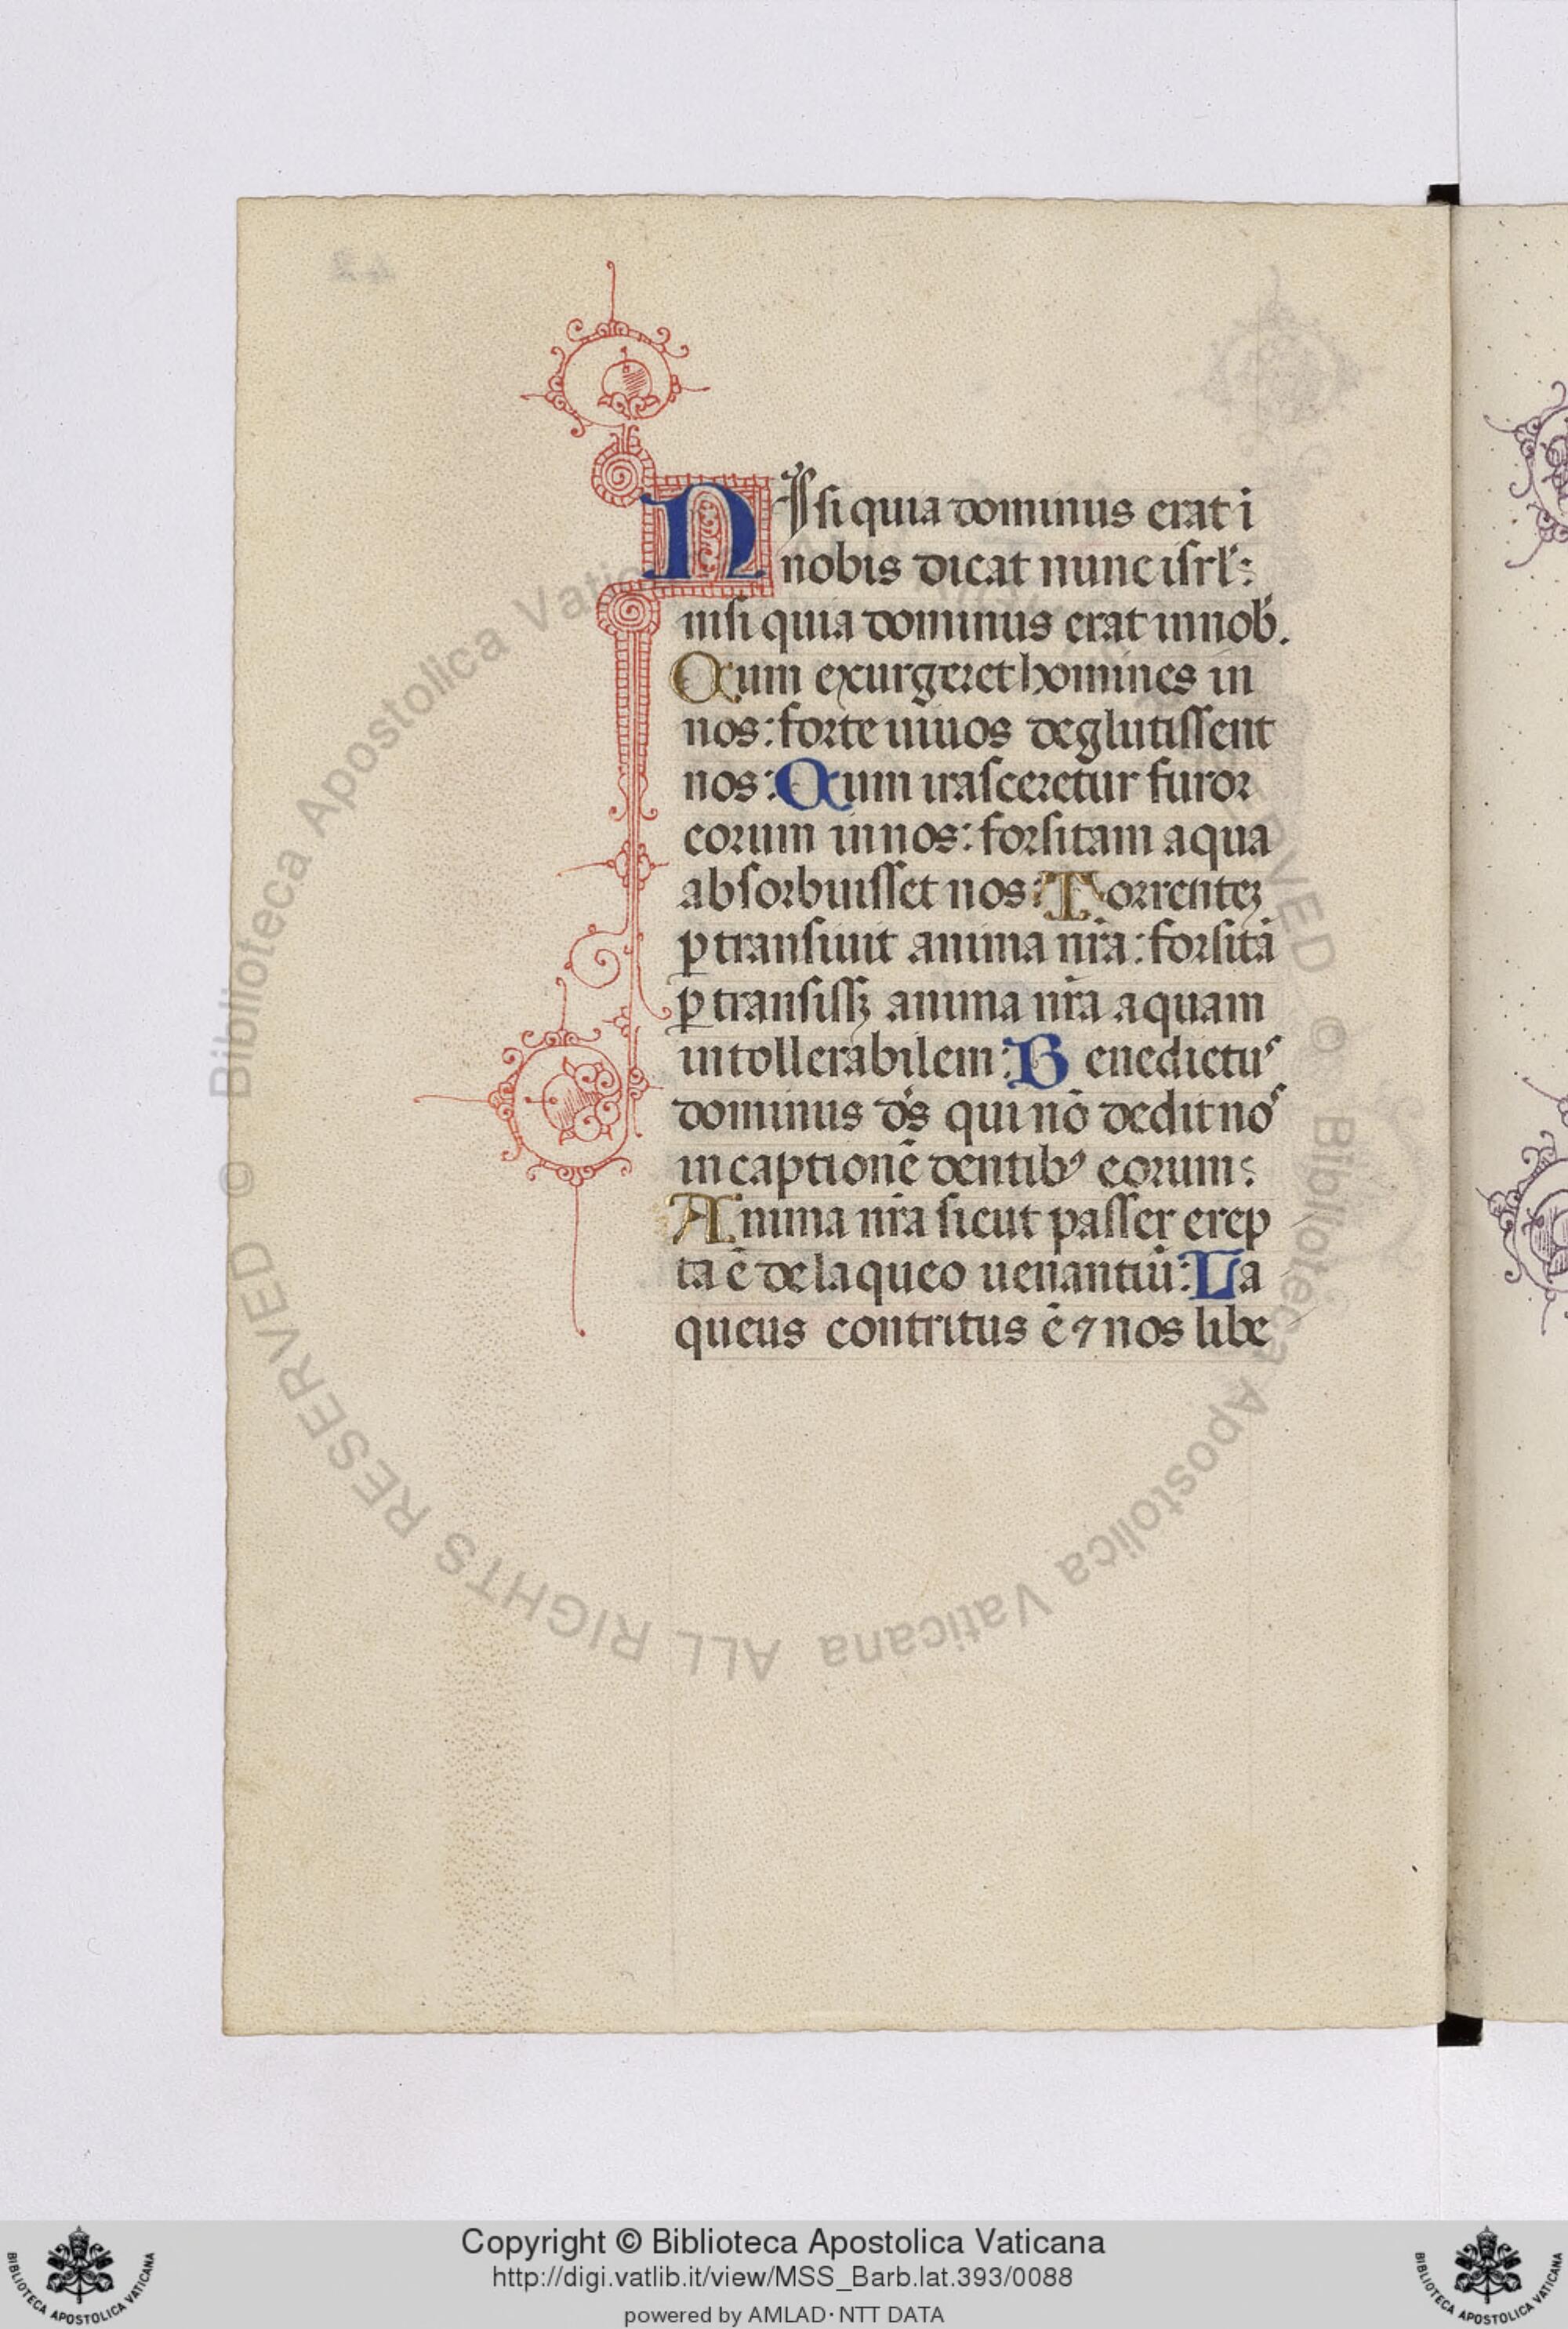 NIsi quia dominus erat i
nobis dicat nunc isrl':
nisi quia dominus erat in nob'.
Qum exurgeret homines in
nos: forte uiuos deglutissent
nos: Qum irasceretur furor
eorum in nos: forsitam aqua
absorbuisset nos: Torrenteʒ
ꝑtransiuit anima nr̄a: forsitā
ꝑtransissʒ anima nr̄a aquam
intollerabilem: Benedictuˢ
dominus dˢ qui nō dedit noˢ
in captionē dentibꝰ eorum:
Anima nr̄a sicut passer erep
ta ē de laqueo uenantiū: La
queus contritus ē ⁊ nos libe
Copyright © Biblioteca Apostolica Vaticana
http://digi.vatlib.it/view/MSS_Barb.lat.393/0088
powered by AMLAD·NTT DATA
BIBLIOTECA APOSTOLICA VATICANA
BIBLIOTECA APOSTOLICA VATICANA
© Biblioteca Apostolica Vaticana ALL RIGHTS RESERVED © Biblioteca Apostolica Vatic
RVED